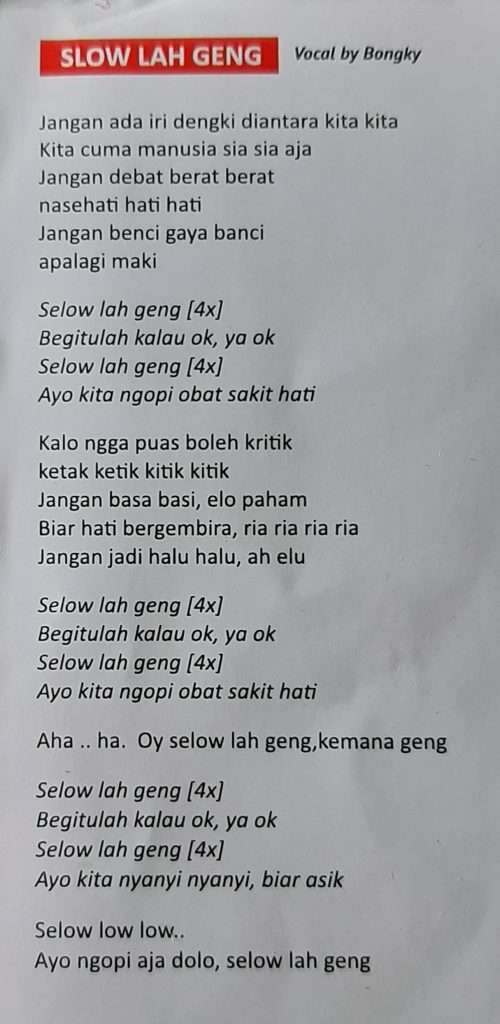 SLOW LAH GENG Vocal by Bongky
Jangan ada iri dengki diantara kita kita
Kita cuma manusia sia sia aja
Jangan debat berat berat
nasehati hati hati
Jangan benci gaya banci
apalagi maki
Selow lah geng [4x]
Begitulah kalau ok, ya ok
Selow lah geng [4x]
Ayo kita ngopi obat sakit hati
Kalo ngga puas boleh kritik
ketak ketik kitik kitik
Jangan basa basi, elo paham
Biar hati bergembira, ria ria ria ria
Jangan jadi halu halu, ah elu
Selow lah geng [4x]
Begitulah kalau ok, ya ok
Selow lah geng [4x]
Ayo kita ngopi obat sakit hati
Aha .. ha. Oy selow lah geng,kemana geng
Selow lah geng [4x]
Begitulah kalau ok, ya ok
Selow lah geng [4x]
Ayo kita nyanyi nyanyi, biar asik
Selow low low..
Ayo ngopi aja dolo, selow lah geng